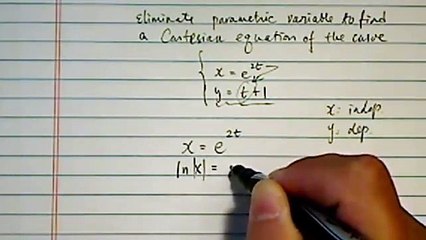 eliminate parametric variable to find
a Cartesian equation of the curve
x = e^{2t}
y = t + 1
x: indep
y: dep
x = e^{2t}
ln|x| =